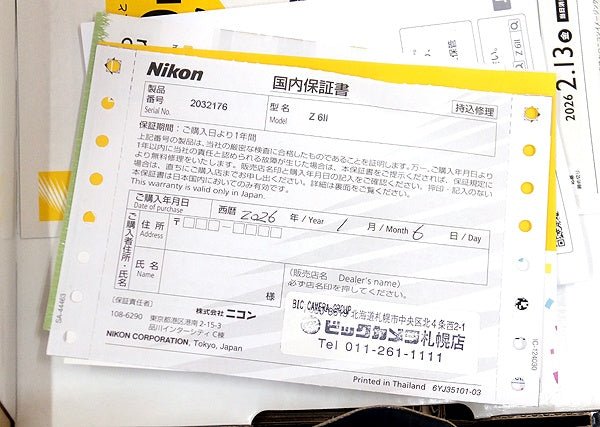 Nikon
国内保証書
製品番号 Serial No. 2032176
型名 Model Z 6II
持込修理
保証期間：ご購入日より1年間
上記番号の製品は、当社の厳密な検査に合格したものであることを証明します。万一、ご購入年月日より
1年以内に当社の責任と認められる故障が生じた場合は、本保証書をご提示くだされば、保証規定に
より無料修理をいたします。販売店名印と購入年月日の記入をご確認ください。押印・記入のない
場合は、直ちにご購入店までお申し出ください。詳細は裏面をご覧ください。
本保証書は日本国内においてのみ有効です。
This warranty is valid only in Japan.
ご購入年月日 Date of purchase 西暦 2026 年 / Year 1 月 / Month 6 日 / Day
ご購入者住所・氏名
住所 Address 〒
氏名 Name
様
(販売店名 Dealer's name)
必ず店名印を押してください。
(保証責任者)
株式会社 ニコン
108-6290 東京都港区港南2-15-3
品川インターシティC棟
NIKON CORPORATION, Tokyo, Japan
BIC CAMERA GROUP
北海道札幌市中央区北4条西2-1
ビックカメラ札幌店
Tel 011-261-1111
Printed in Thailand 6YJ35101-03
SA-44463
Z 6II
2026 2.13 金